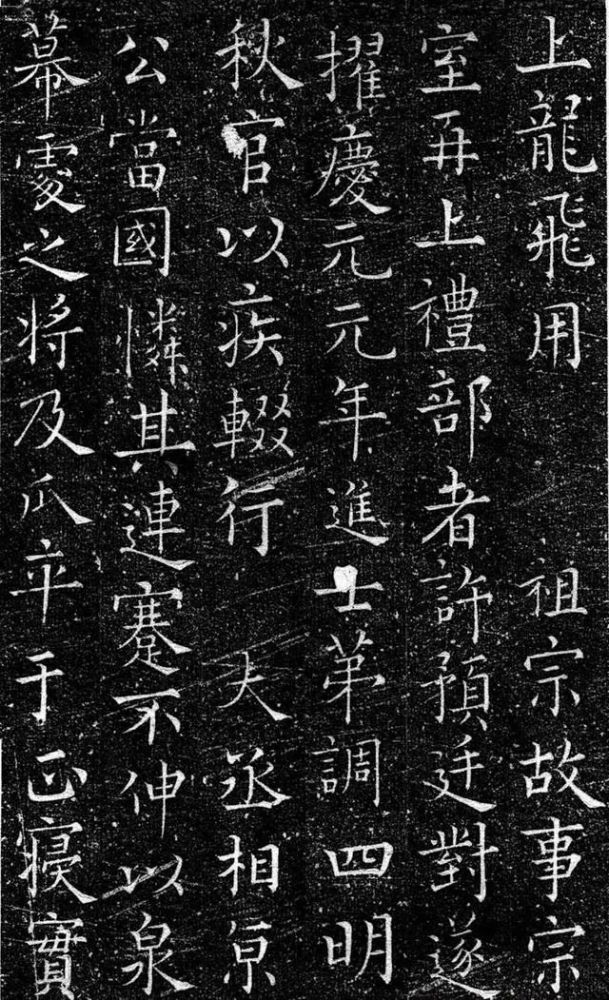 上龍飛用 祖宗故事宗
室再上禮部者許預廷對遂
擢慶元元年進士第調四明
秋官以疾輟行 大丞相京
公當國憐其連蹇不伸以泉
幕處之將及瓜卒于正寢實